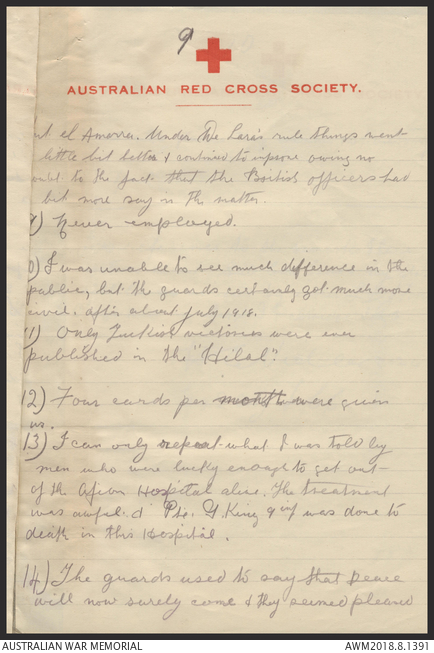 9
AUSTRALIAN RED CROSS SOCIETY.
ut el Amarra. Under De Lara's rule things went
little bit better & continued to improve owing no
to the fact that the British officers had
bit more say in the matter.
9) Never employed.
0) I was unable to see much difference in the
public, but the guards certainly got much more
civil. after about July 1918.
11) Only Turkish victories were ever
published in the "Hilal".
12) Four cards per month were given
us.
13) I can only repeat what I was told by
men who were lucky enough to get out
of the Afion Hospital alive. The treatment
was awful. & Pte. King 9th was done to
death in this Hospital.
14) The guards used to say that peace
will now surely come & they seemed pleased
AUSTRALIAN WAR MEMORIAL
AWM2018.8.1391